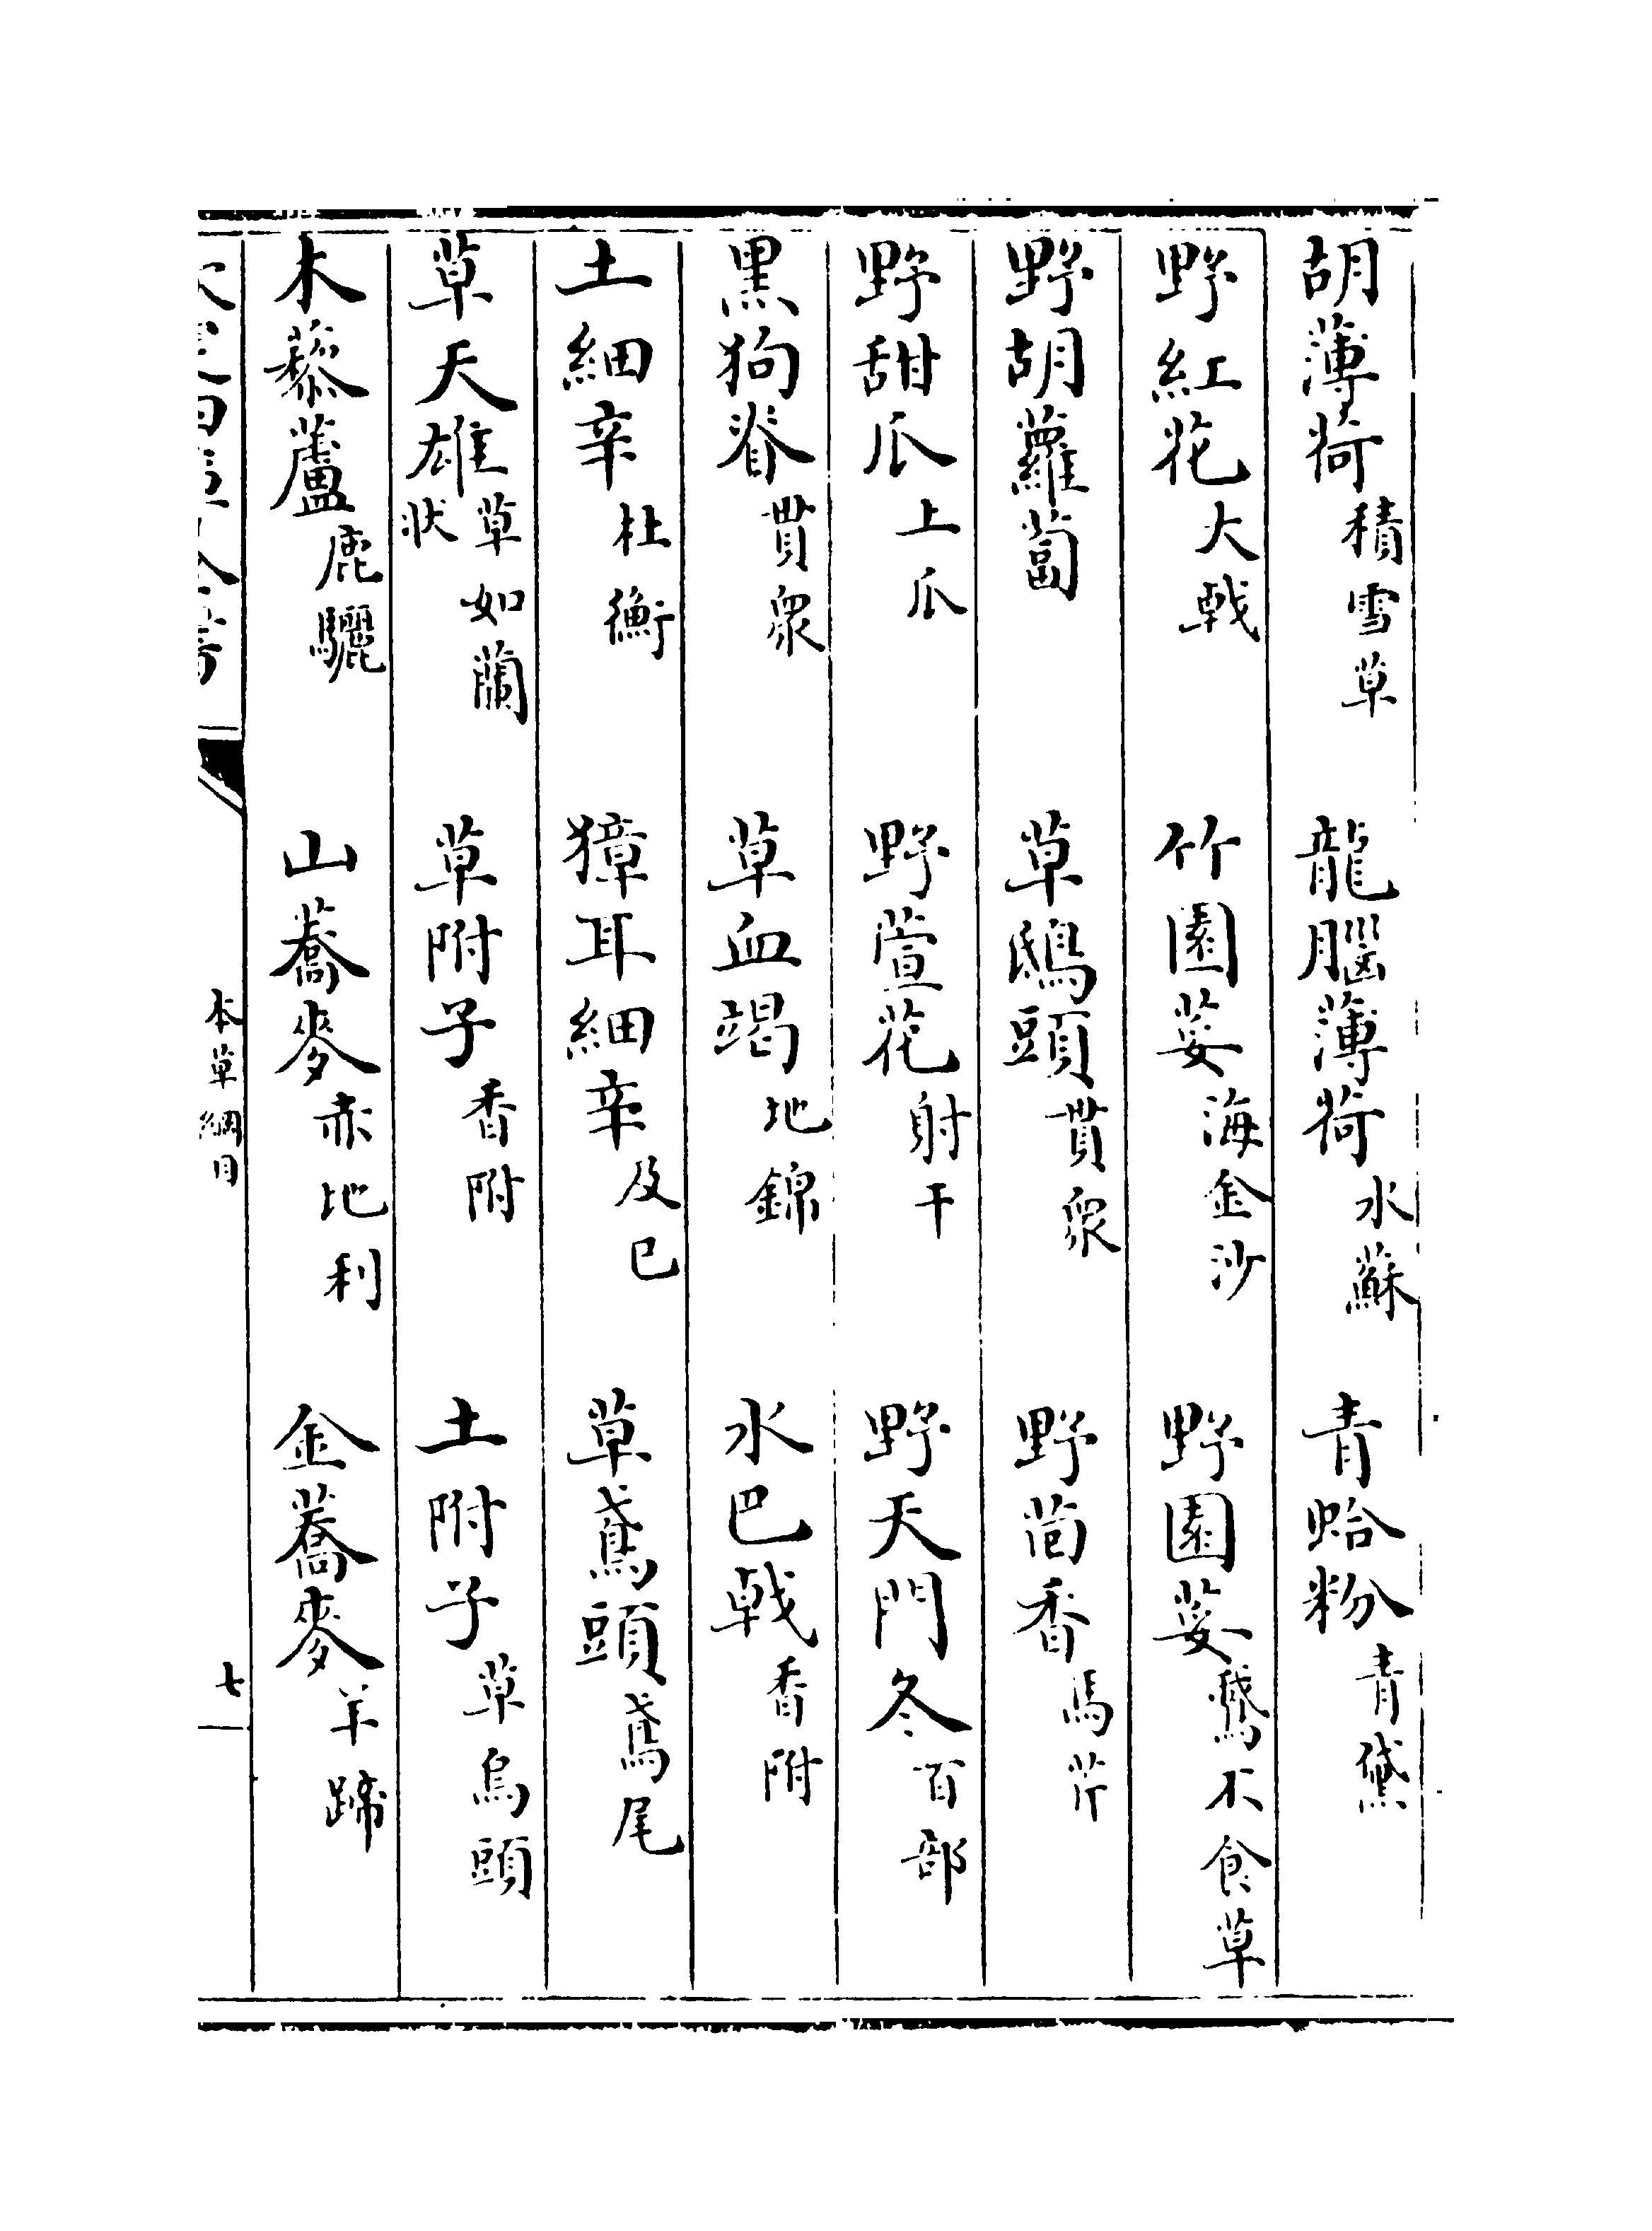 胡薄荷積雪草 龍腦薄荷水蘇 青蛤粉青黛
野紅花大戟 竹園荽海金沙 野園荽鵞不食草
野胡蘿蔔 草鴟頭貫衆 野茴香馬芹
野甜瓜上瓜 野萱花射干 野天門冬百部
黒狗脊貫衆 草血竭地錦 水巴戟香附
土細辛杜衡 獐耳細辛及巳 草鳶頭鳶尾
草天雄草如蘭狀 草附子香附 土附子草烏頭
木藜蘆鹿驪 山蕎麥赤地利 金蕎麥羊蹄
本草綱目 七